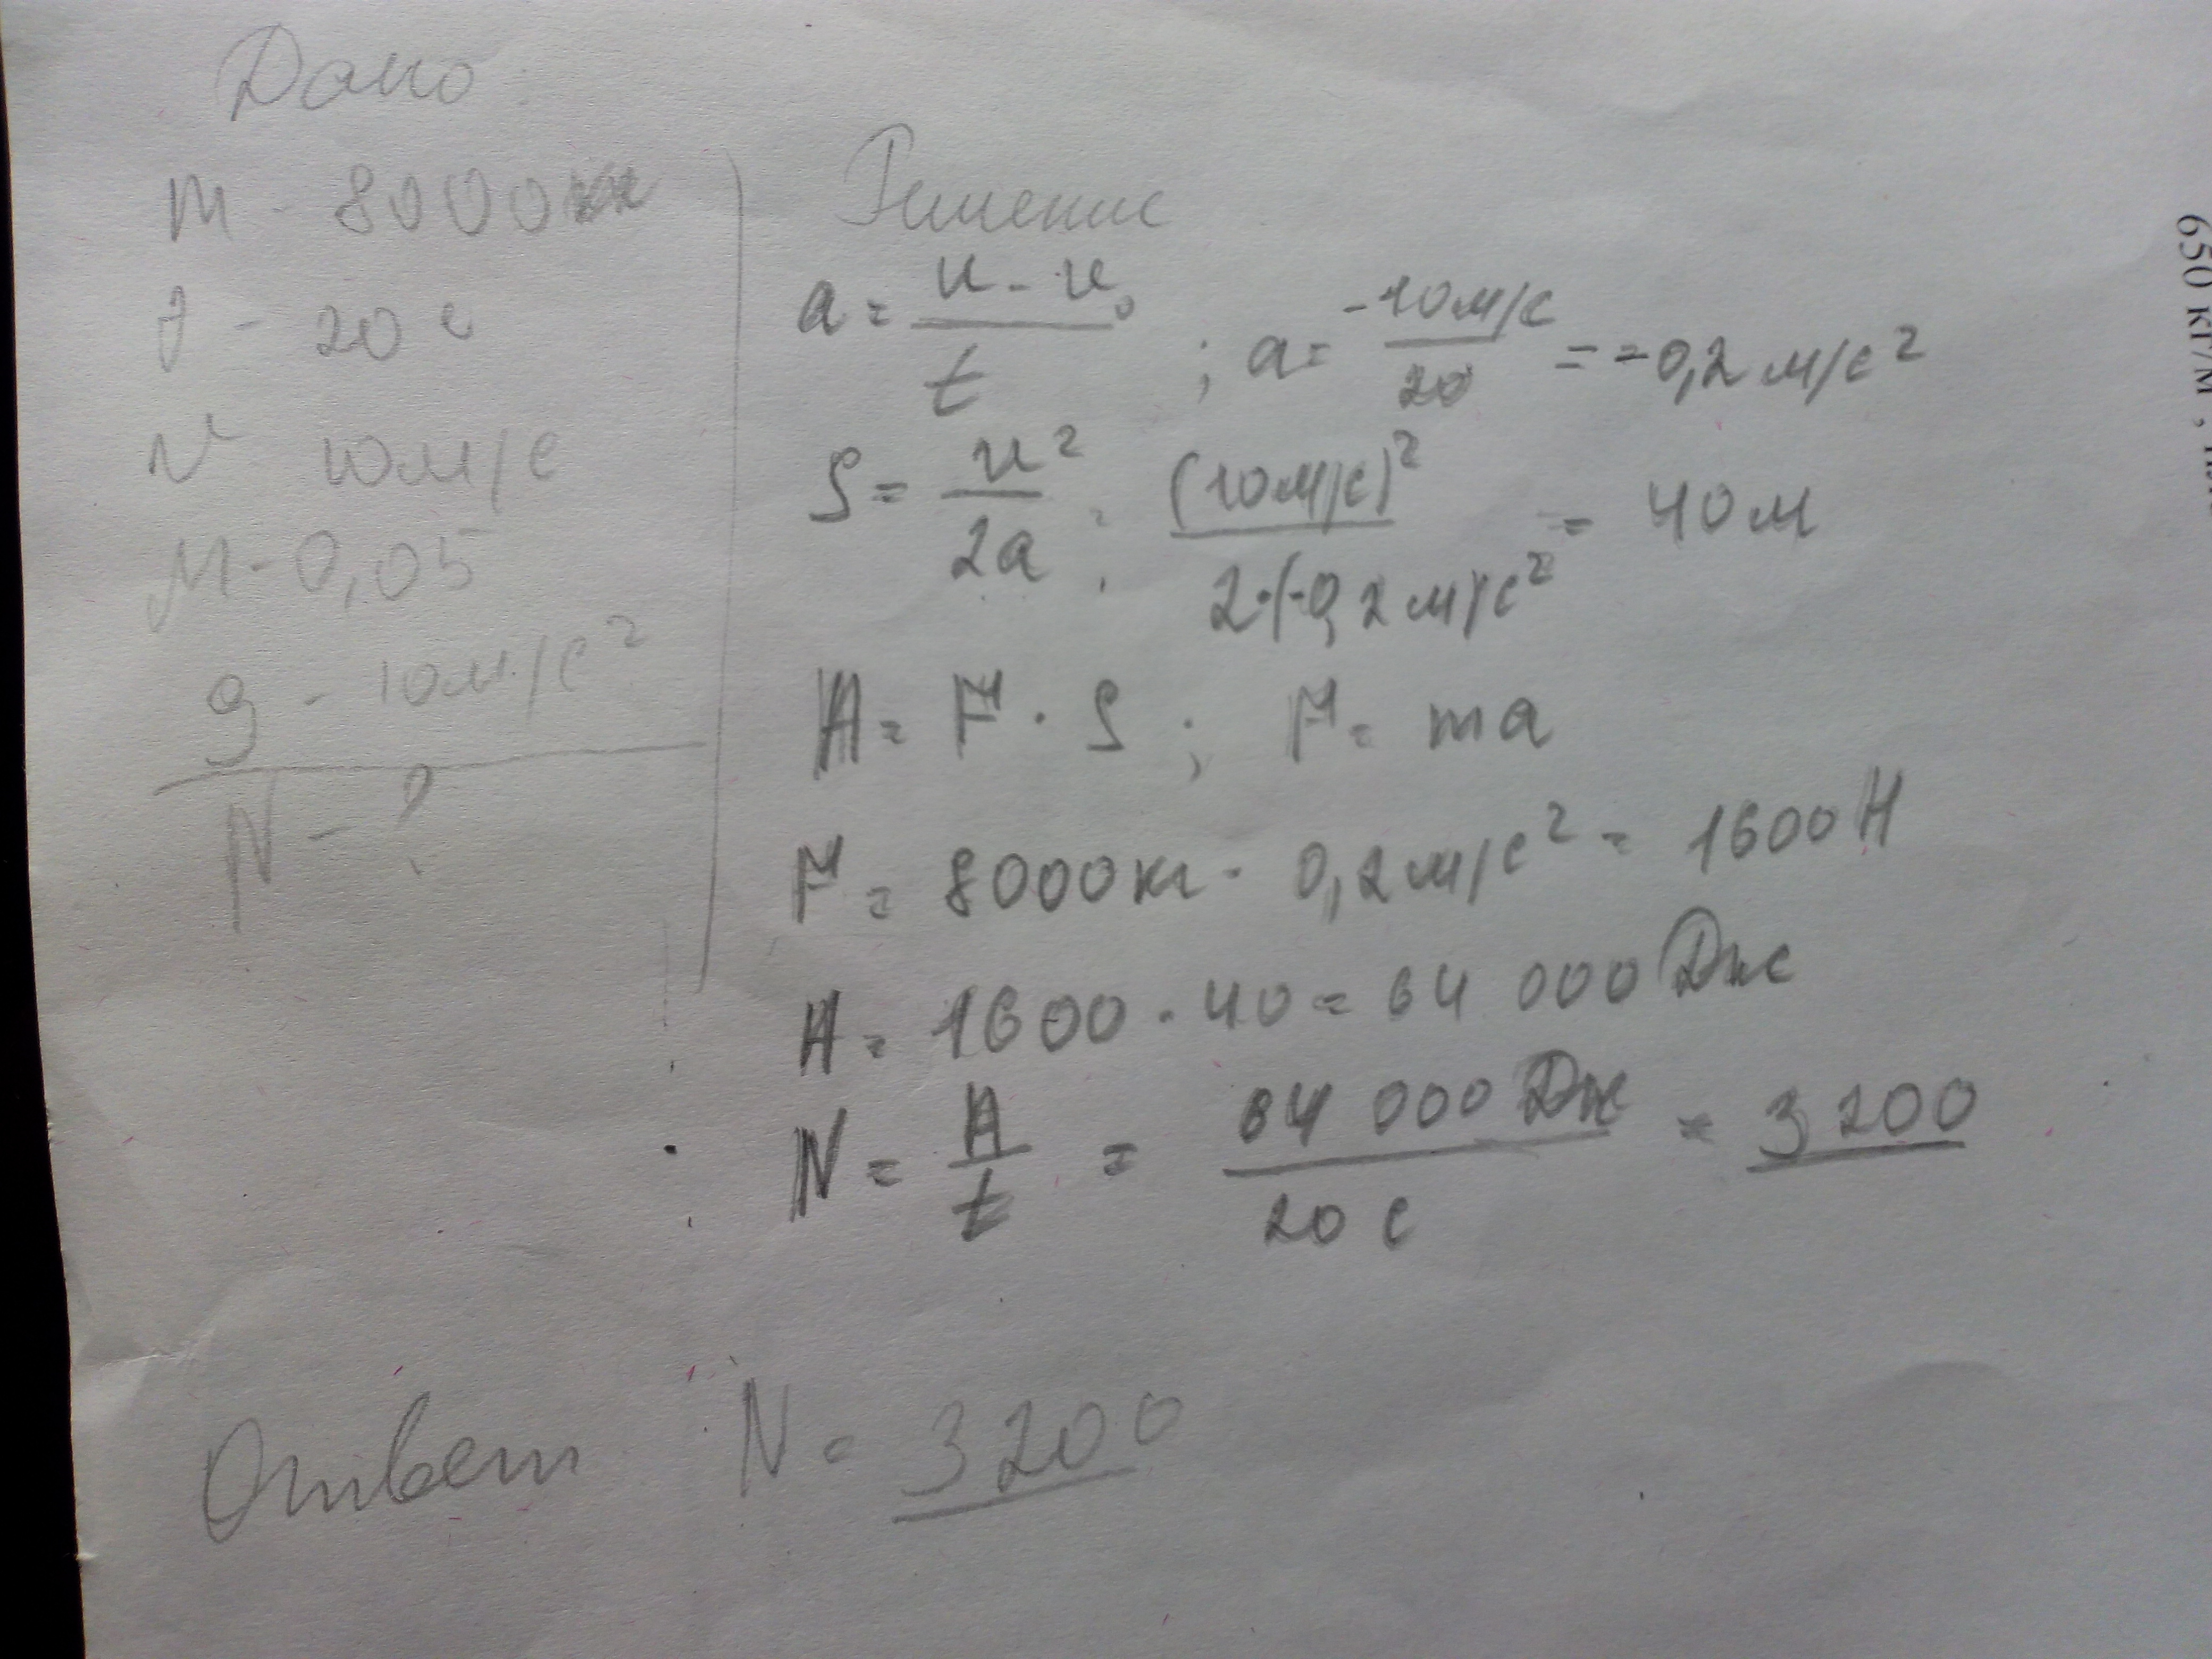 Дано:
m - 8000 кг
t - 20 с
v 10 м/с
M - 0,05
g - 10 м/с²
N - ?
Решение
a = (v - v₀)/t ; a = -10 м/с / 20 = = -0,2 м/с²
S = v²/2a ; (10 м/с)² / 2·(-0,2 м/с² = 40 м
A = F · S ; F = ma
F = 8000 кг · 0,2 м/с² = 1600 Н
A = 1600 · 40 = 64 000 Дж
N = A/t = 64 000 Дж / 20 с = 3 200
Ответ N = 3200
650 кг/м